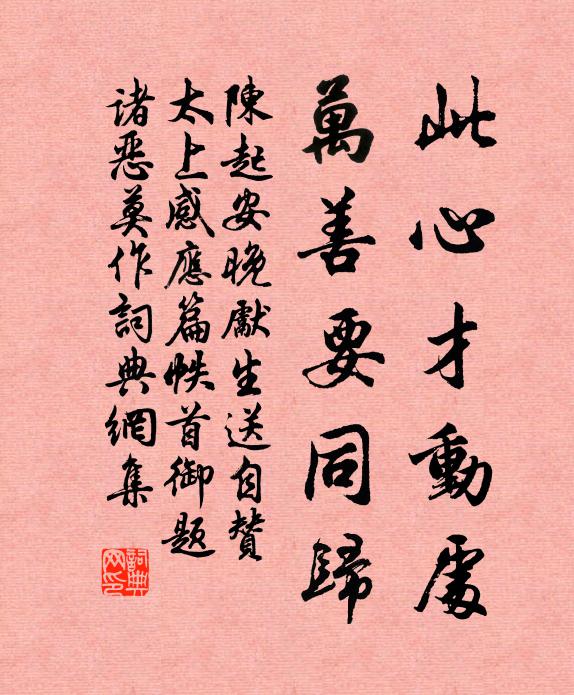 此心才動處
萬善要同歸
陳起安晚獻生送自贊
太上感應篇帙首御題
諸惡莫作詞典網集
詞典網印